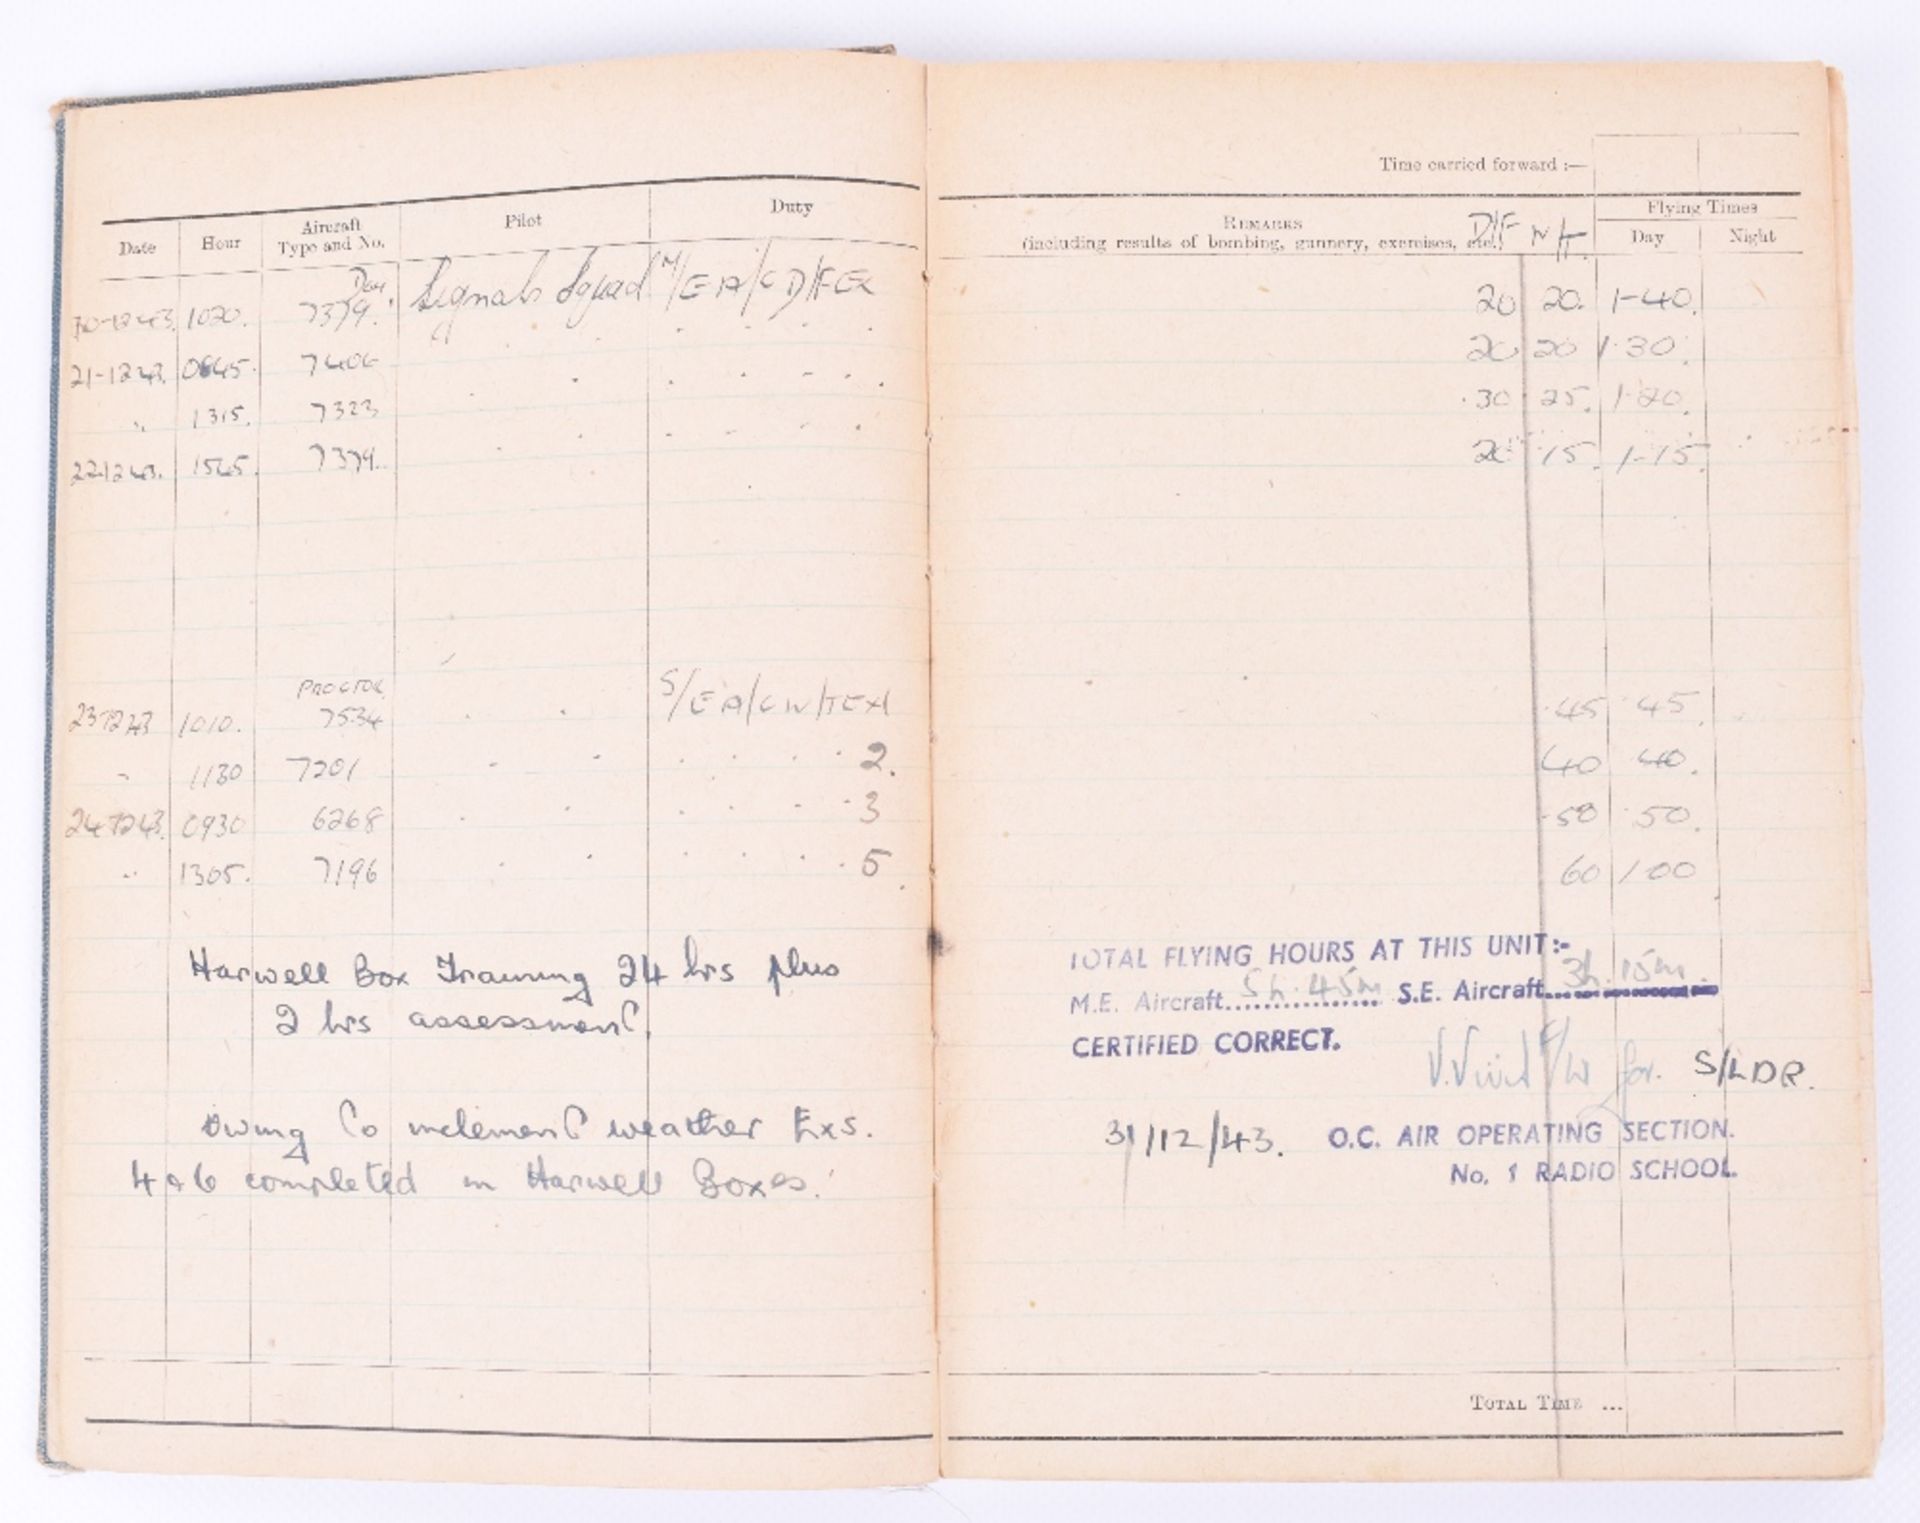 Date Hour Aircraft Type and No. Pilot Duty
Signals Squad M/E A/C D/F EX
1020. 7379.
21-12-43. 0845. 7406
" 1315. 7323
22-12-43. 1545. 7379.
PROCTOR S/E A/C W/T EX 1
23-12-43 1010. 7534
" 1130 7201 2.
24-12-43. 0930 6268 3
" 1305. 7196 5.
Harwell Box Training 24 hrs plus
2 hrs assessment.
Owing to inclement weather Exs.
4 & 6 completed in Harwell Boxes.
Time carried forward :—
REMARKS
(including results of bombing, gunnery, exercises, etc.) D/F W/T
Flying Times
Day Night
20 20. 1-40.
20 20 1.30.
.30 25. 1.20.
20 15. 1-15.
.45 .45.
40 40.
.50 .50.
60 1.00
TOTAL FLYING HOURS AT THIS UNIT :-
M.E. Aircraft 5h. 45m S.E. Aircraft 3h. 15m.
CERTIFIED CORRECT.
for. S/LDR.
31/12/43. O.C. AIR OPERATING SECTION.
No. 1 RADIO SCHOOL.
TOTAL TIME ...